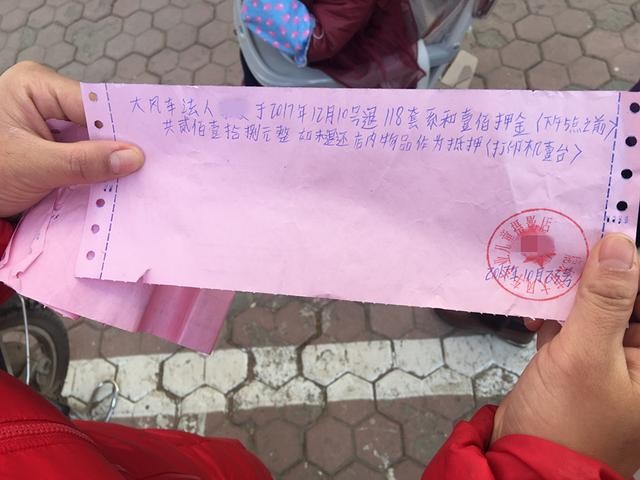 大风车法人 于2017年12月10号退118套系和壹佰押金〈下午5点之前〉
共贰佰壹拾捌元整 如未还店内物品作为抵押〈打印机壹台〉
儿童摄影店
大风车
2017年10月25号